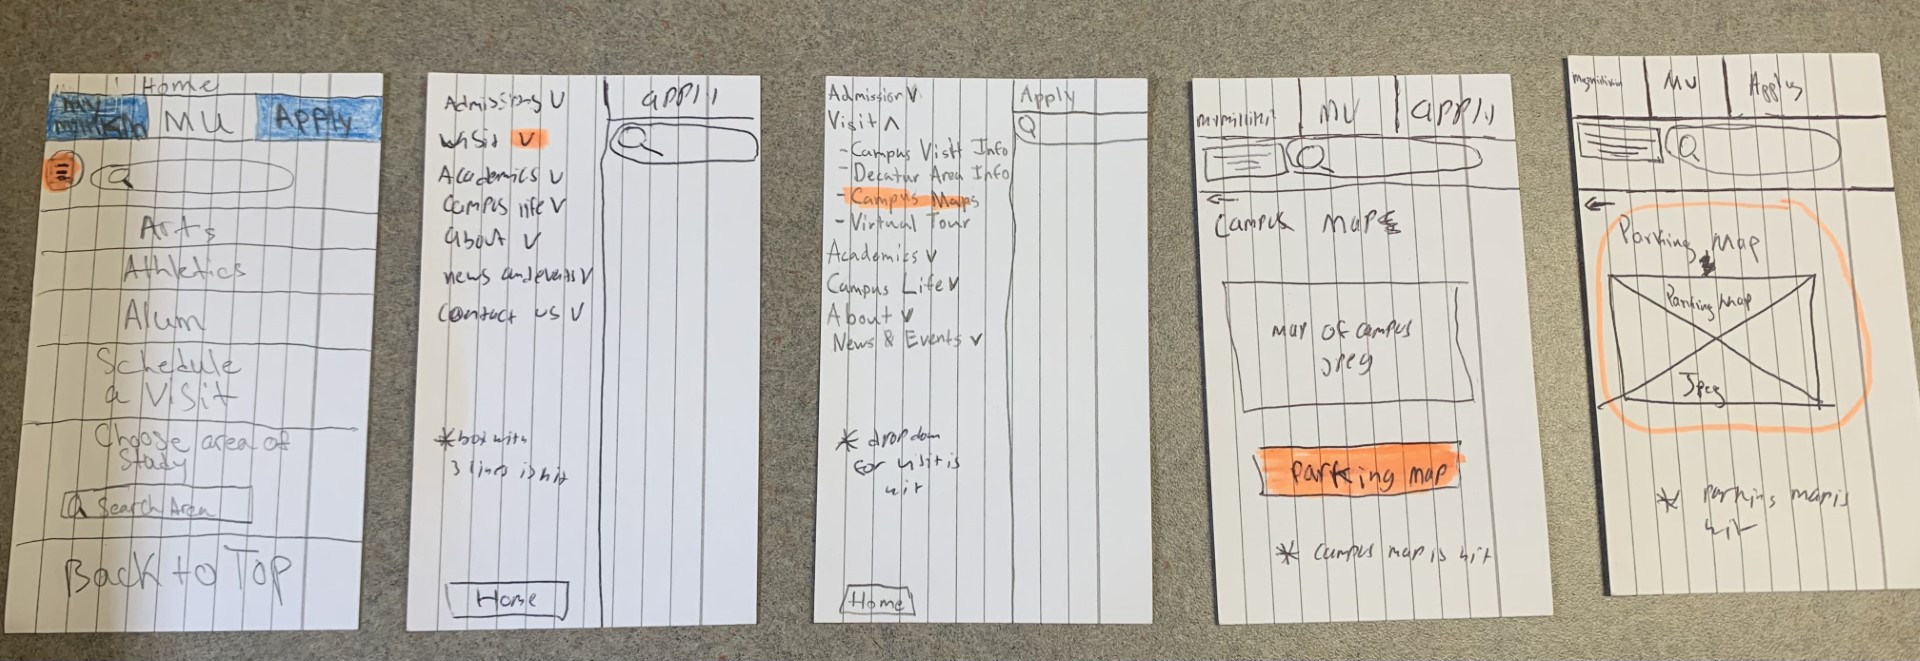 Home
my
millikin
MU
Apply
Arts
Athletics
Alum
Schedule
a Visit
Choose area of
study
Search Area
Back to Top
Admissions V
Visit V
Academics V
Campus life V
about V
news and events V
Contact us V
apply
* box with
3 lines is hit
Home
Admission V
Visit Λ
- Campus Visit Info
- Decatur Area Info
- Campus Maps
- Virtual Tour
Academics V
Campus Life V
About V
News & Events V
Apply
* drop down
for visit is
hit
Home
MU
apply
←
Campus Maps
map of campus
jpeg
parking map
* campus map is hit
MU
Apply
←
Parking Map
Parking Map
Jpeg
* parking map is
hit